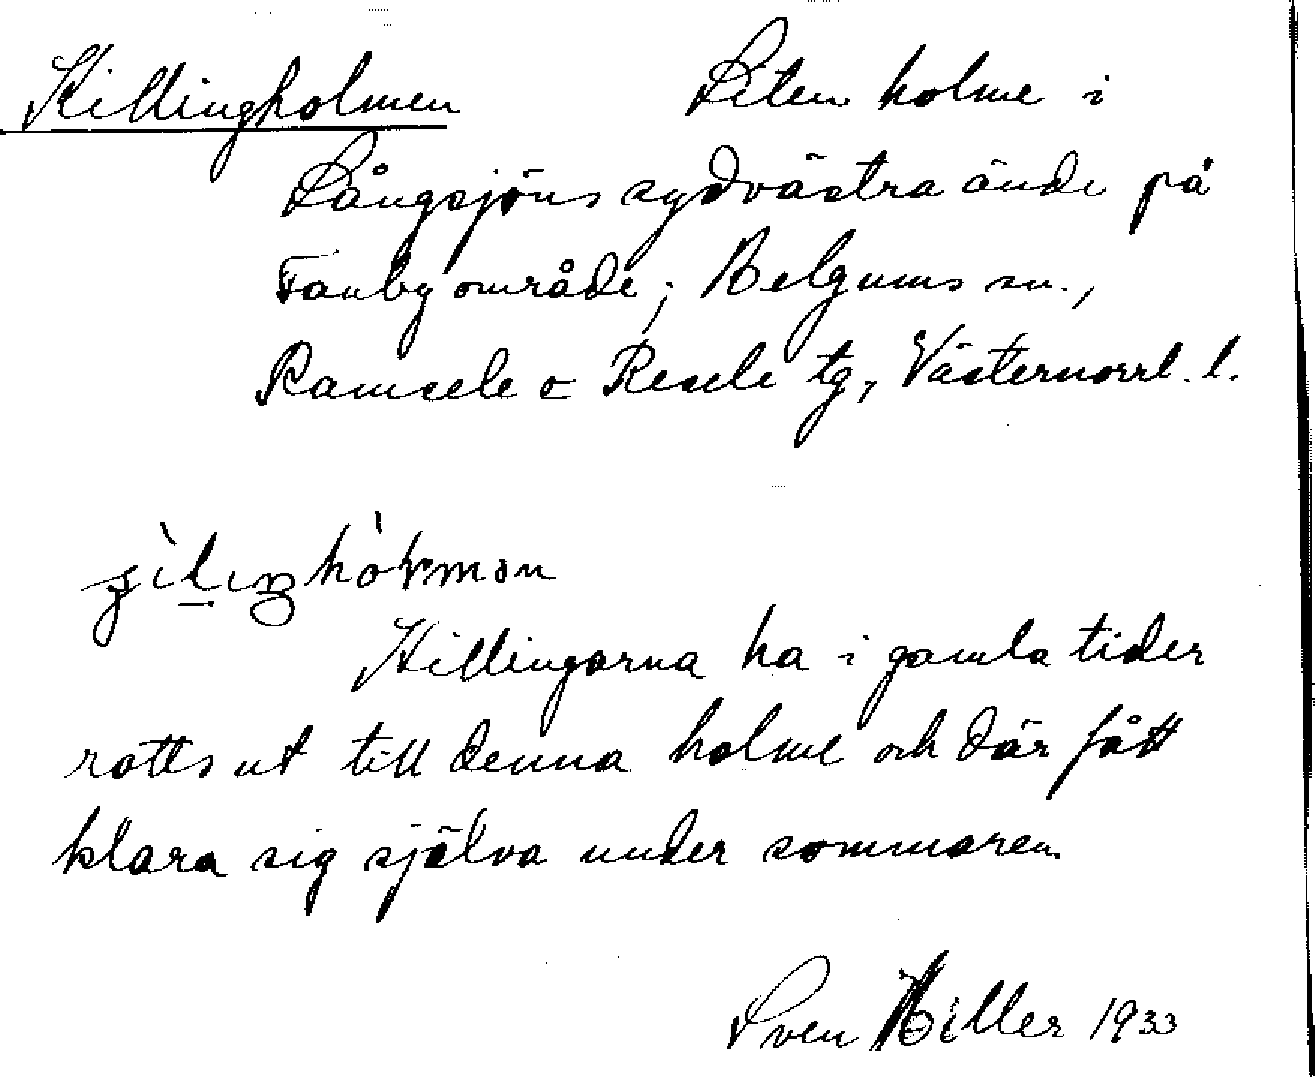 Killingholmen Liten holme i
Långsjöns sydvästra ände på
Tanby område, Helgums sn.,
Ramsele o Resele tg, Västernorrl. l.
Killingarna ha i gamla tider
rotts ut till denna holme och där fått
klara sig själva under sommaren
Sven Hiller 1933